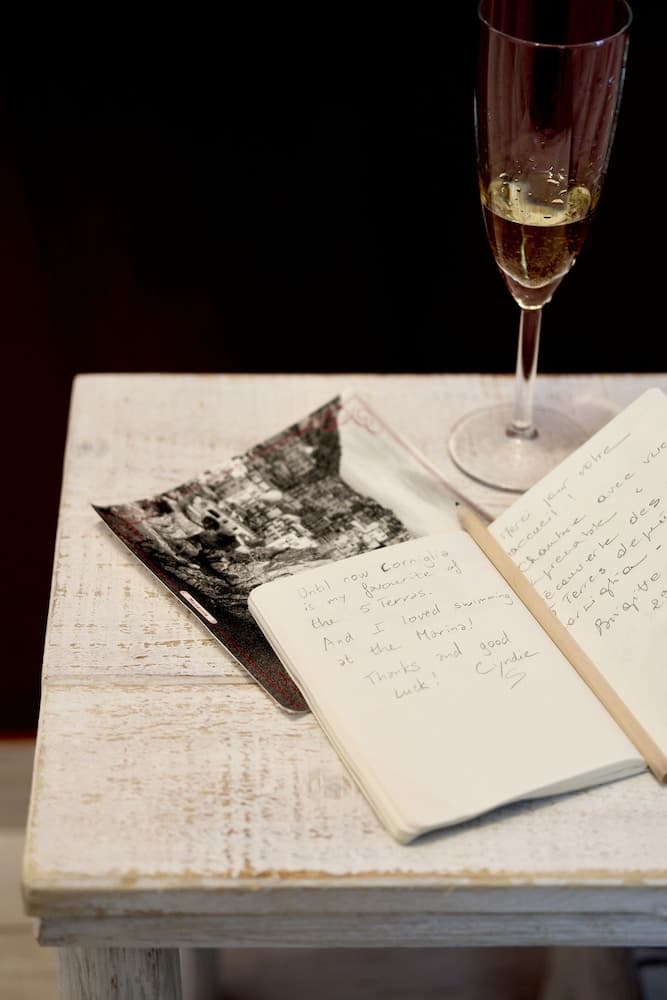 Until now Corniglia
is my favourite of
the 5 Terras.
And I loved swimming
at the Marina!
Thanks and good
luck! Cyndie
Merci pour votre
accueil !
Chambre avec vue
imprenable,
écouverte des
5 Terres depuis
orniglia
Brigitte